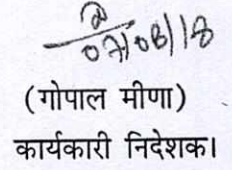 07/08/18
(गोपाल मीणा)
कार्यकारी निदेशक।